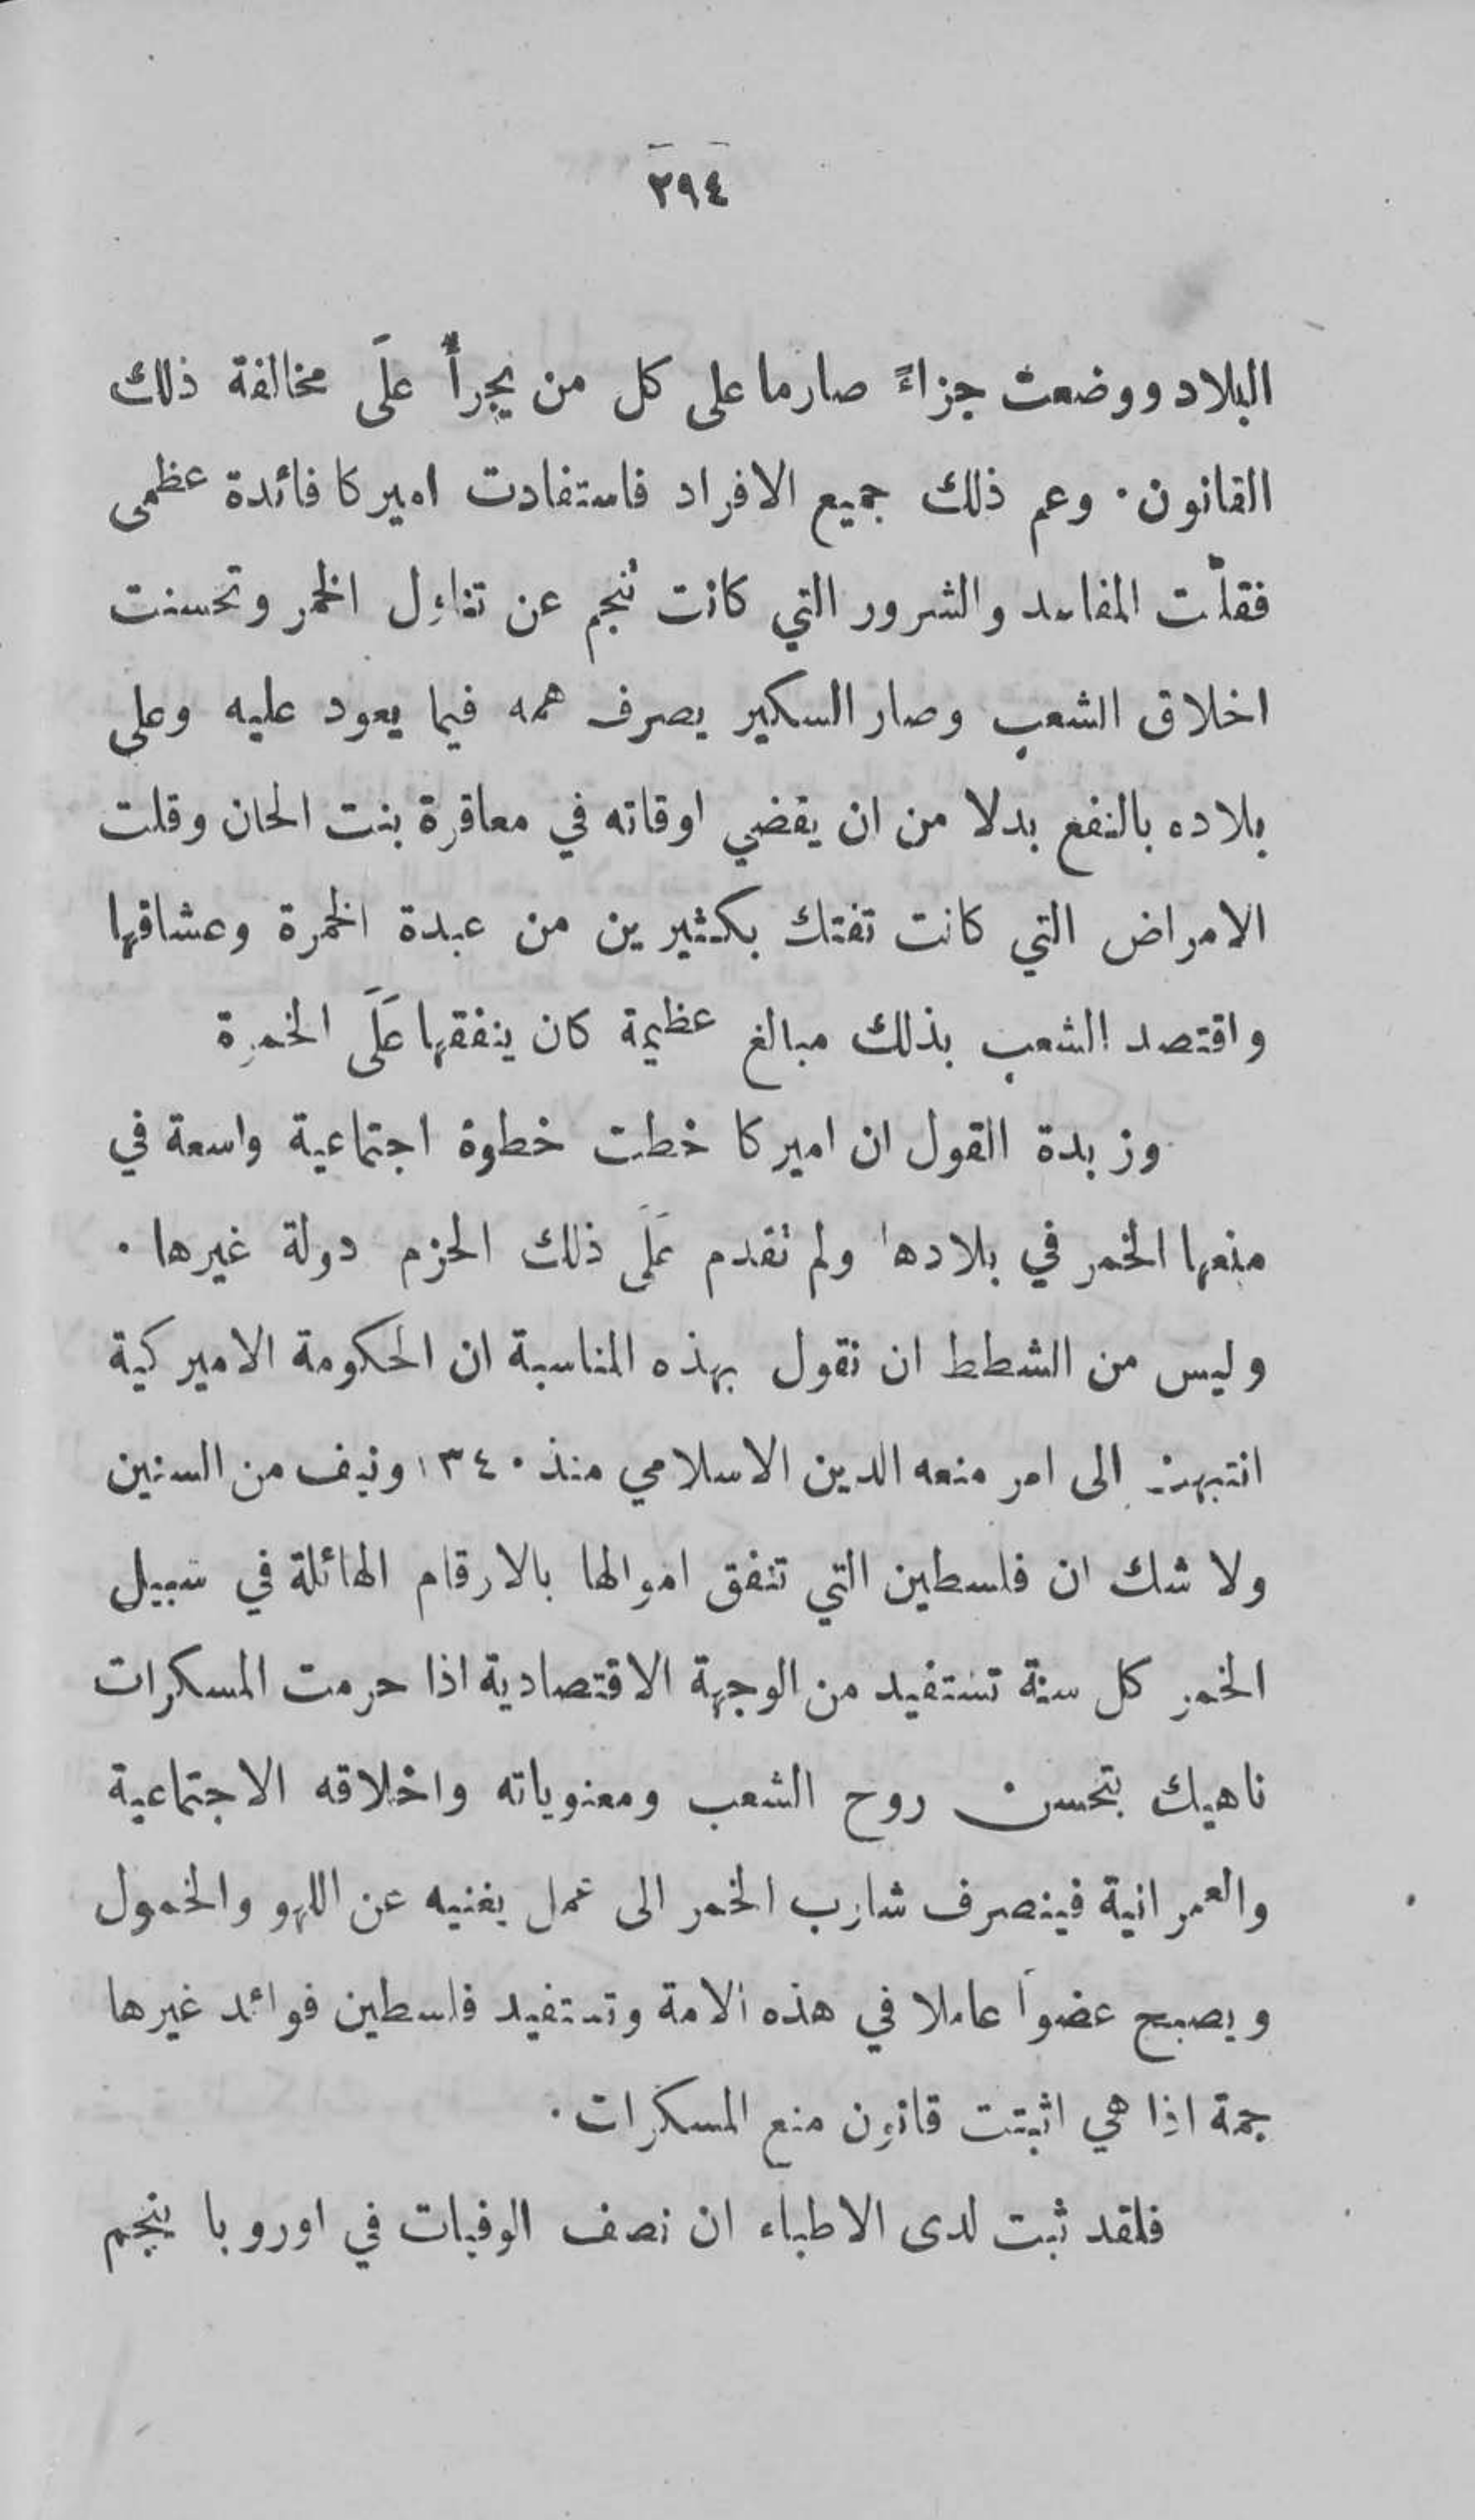 ٢٩٤
البلاد ووضعت جزاءً صارما على كل من يجرأُ علَى مخالفة ذلك
القانون. وعم ذلك جميع الافراد فاستفادت اميركا فائدة عظمى
فقلّت المفاسد والشرور التي كانت تنجم عن تناول الخمر وتحسنت
اخلاق الشعب وصار السكير يصرف همه فيما يعود عليه وعلى
بلاده بالنفع بدلا من ان يقضي اوقاته في معاقرة بنت الحان وقلت
الامراض التي كانت تفتك بكثيرين من عبدة الخمرة وعشاقها
واقتصد الشعب بذلك مبالغ عظيمة كان ينفقها عَلَى الخمرة
وزبدة القول ان اميركا خطت خطوة اجتماعية واسعة في
منعها الخمر في بلادها ولم تقدم عَلَى ذلك الحزم دولة غيرها.
وليس من الشطط ان نقول بهذه المناسبة ان الحكومة الاميركية
انتبهت الى امر منعه الدين الاسلامي منذ ١٣٤٠ ونيف من السنين
ولا شك ان فلسطين التي تنفق اموالها بالارقام الهائلة في سبيل
الخمر كل سنة تستفيد من الوجهة الاقتصادية اذا حرمت المسكرات
ناهيك بتحسن روح الشعب ومعنوياته واخلاقه الاجتماعية
والعمرانية فينصرف شارب الخمر الى عمل يغنيه عن اللهو والخمول
ويصبح عضواً عاملا في هذه الامة وتستفيد فلسطين فوائد غيرها
جمة اذا هي اثبتت قانون منع المسكرات.
فلقد ثبت لدى الاطباء ان نصف الوفيات في اوروبا ينجم